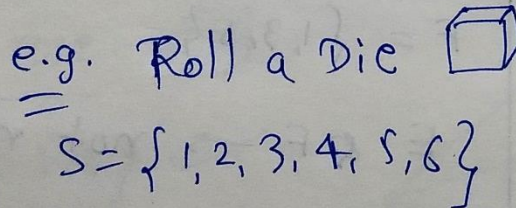 e.g. Roll a Die
S = { 1, 2, 3, 4, 5, 6 }